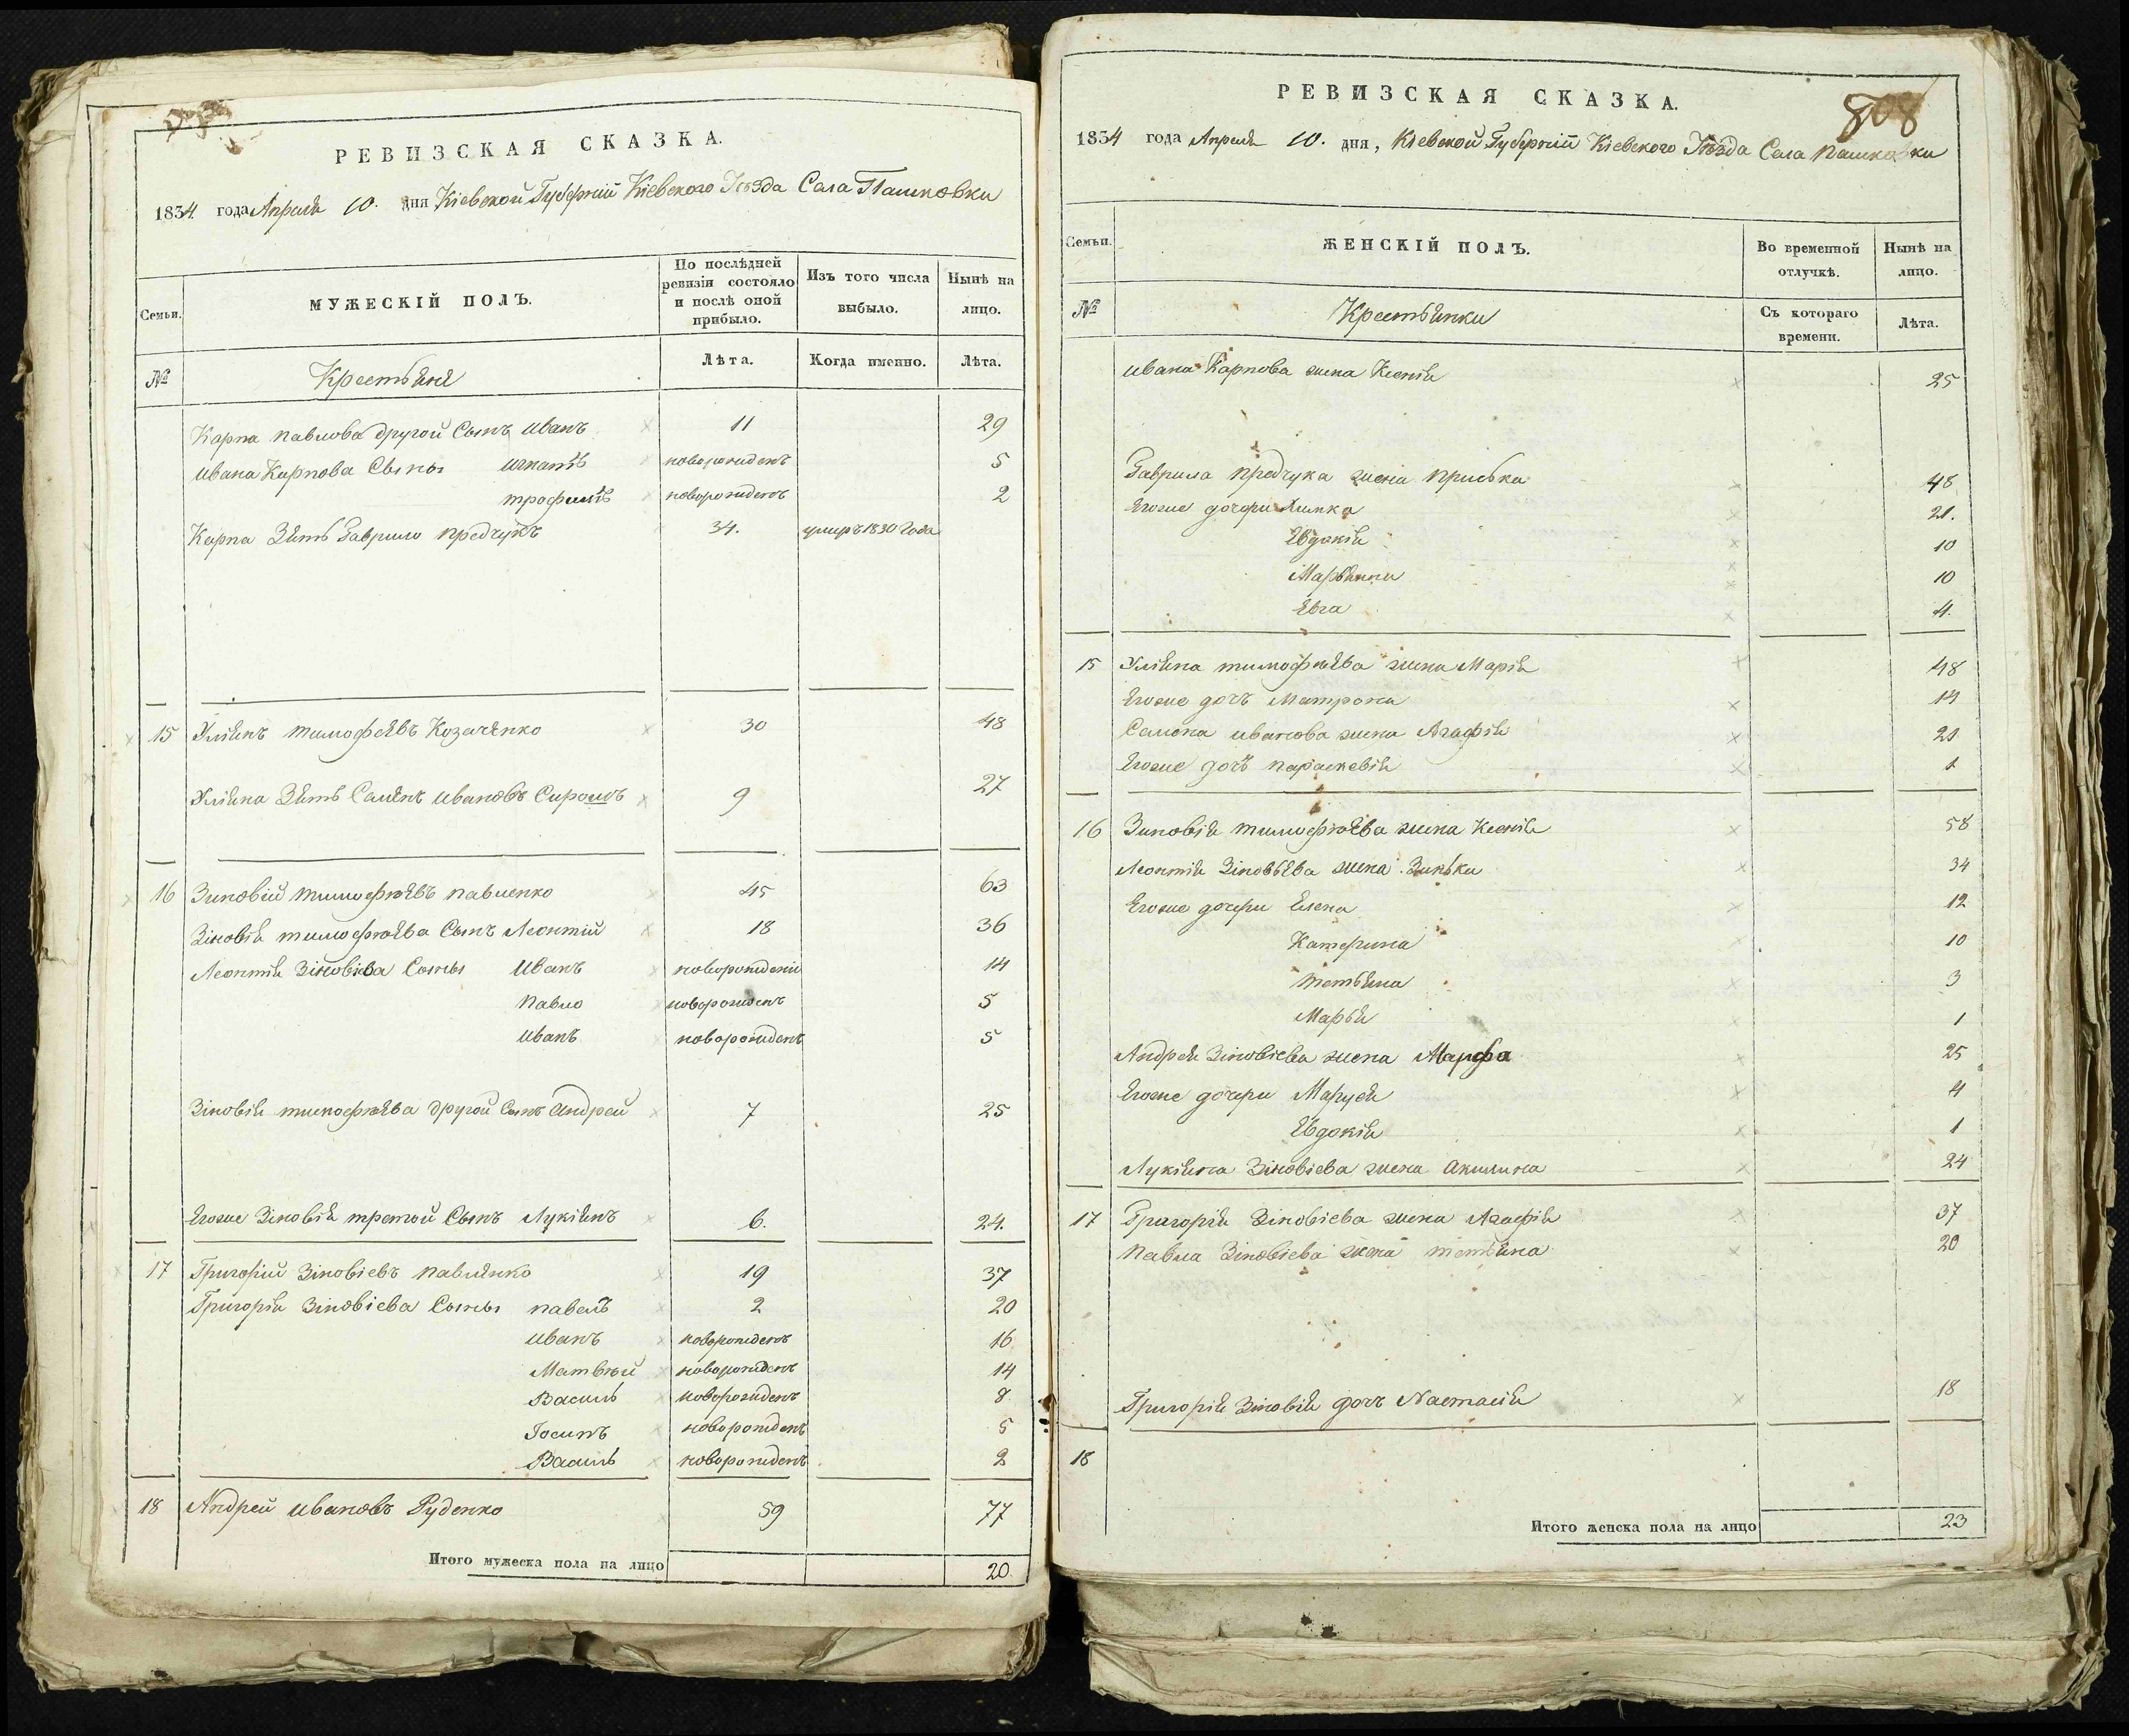 РЕВИЗСКАЯ СКАЗКА.
1834 года Апреля 10. дня Кіевской Губерніи Кіевского Уѣзда Села Пашковки
Семьи.
МУЖЕСКІЙ ПОЛЪ.
По послѣдней ревизіи состояло и послѣ оной прибыло.
Изъ того числа выбыло.
Нынѣ на лицо.
№
Крестьяне
Лѣта.
Когда именно.
Лѣта.
Карпа павлова другой Сынъ Иванъ 11 29
Ивана Карпова Сыны Игнатъ новорожденъ 5
трофимъ новорожденъ 2
Карпа Зять Гаврило предчукъ 34. умиръ 1830 Года
15 Уліянъ тимофѣевъ Козаченко 30 48
Уліяна Зять Семенъ Ивановъ 9 27
16 Зиновій тимофѣевъ павленко 45 63
Зіновія тимофѣева Сынъ Леонтій 18 36
Леонтія Зіновіева Сыны Иванъ новорожденъ 14
павло новорожденъ 5
Иванъ новорожденъ 5
Зіновія тимофѣева другой Сынъ Андрей 7 25
Егоже Зіновія третой Сынъ Лукіянъ 6. 24.
17 Григорій Зіновіевъ павленко 19 37
Григорія Зіновіева Сыны павелъ 2 20
Иванъ новорожденъ 16
Матвѣй новорожденъ 14
Василь новорожденъ 8
Іосипъ новорожденъ 5
Василь новорожденъ 2
18 Андрей Ивановъ Руденко 59 77
Итого мужеска пола на лицо 20.
808
РЕВИЗСКАЯ СКАЗКА.
1834 года Апреля 10. дня, Кіевской Губерніи Кіевского Уѣзда Села Пашковки
Семьи.
ЖЕНСКІЙ ПОЛЪ.
Во временной отлучкѣ.
Нынѣ на лицо.
№
Крестьянки
Съ котораго времени.
Лѣта.
Ивана Карпова жена Ксенія 25
Гаврила предчука жена приська 48
Егоже дочери Химка 21.
Евдокія 10
Марьянна 10
Евга 4.
15 Уліяна тимофѣева жена Марія 48
Егоже дочъ Матрона 14
Семена Иванова жена Агафія 21
Егоже дочъ параскевія 1
16 Зиновія тимофѣева жена Ксенія 58
Леонтія Зіновьева жена Зинька 34
Егоже дочери Елена 12
Катерина 10
тетьяна 3
Марья 1
Андрея Зіновіева жена Марфа 25
Егоже дочери Маруся 4
Евдокія 1
Лукіяна Зіновіева жена Акилина 24
17 Григорія Зіновіева жена Агафія 37
павла Зіновіева жена тетьяна 20
Григорія Зіновія дочъ Настасія 18
18
Итого женска пола на лицо 23